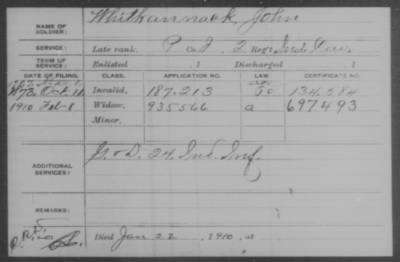 NAME OF SOLDIER: Whithannack, John
SERVICE: Late rank, P Co I, 2 Reg't Ind. Cav.
TERM OF SERVICE: Enlisted , 1 Discharged , 1
DATE OF FILING. CLASS. APPLICATION NO. LAW CERTIFICATE NO.
1873 Oct. 11 Invalid, 187.213 134.584
1910 Feb 8 Widow, 935566 a 697493
Minor,
ADDITIONAL SERVICES: G & D. 24. Ind. Inf.
REMARKS:
Died Jan 22 , 1910, at